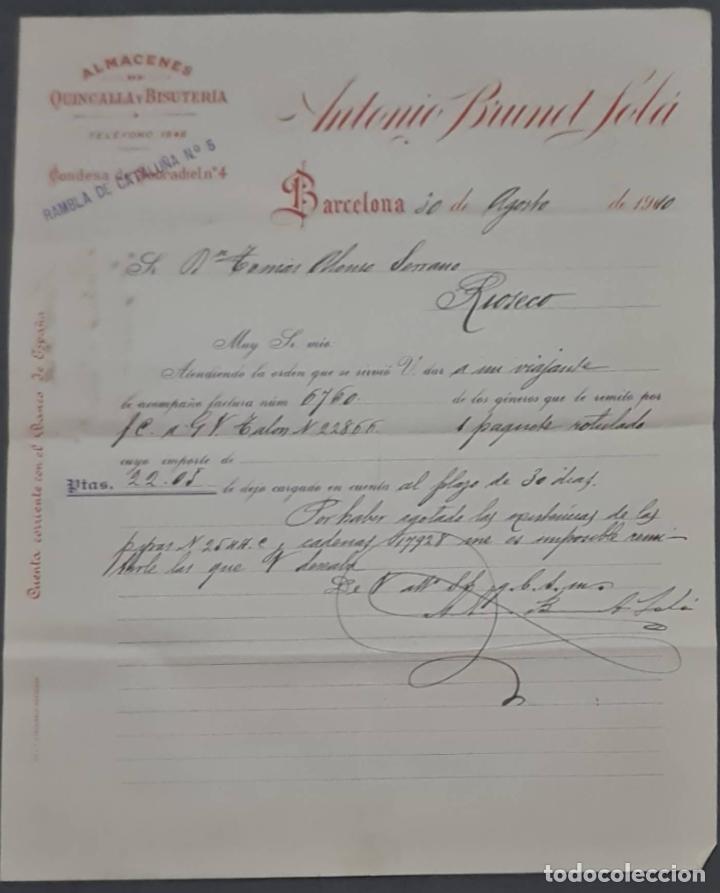 ALMACENES
DE
QUINCALLA Y BISUTERIA
TELÉFONO 1842
Condesa de Sobradiel nº 4
RAMBLA DE CATALUÑA N.º 5
Antonio Brunet Solá
Barcelona 30 de Agosto de 1910
Sr. Dn Tomás Alonso Serrano
Rioseco
Muy Sr. mio:
Atendiendo la orden que se sirvió V. dar a mi viajante
le acompaño factura núm 6760 de los géneros que le remito por
f.C. a GV Talon N 22866 1 paquete rotulado
cuyo importe de
Ptas. 22.05 le dejo cargado en cuenta al plazo de 30 dias.
Por haber agotado las existencias de las
N 2544 C y cadenas 17928 me es imposible remi-
tirle las que V desea
De V
Cuenta corriente con el Banco de España
todocoleccion